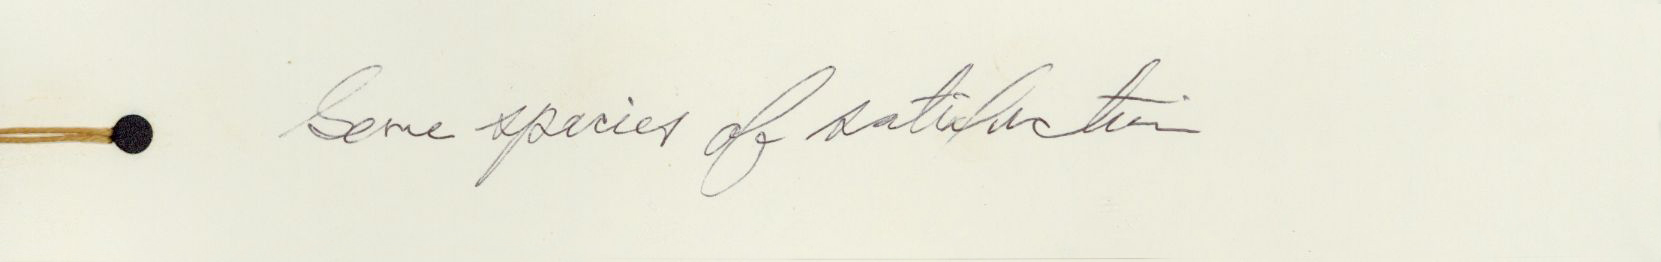 Some species of satisfaction